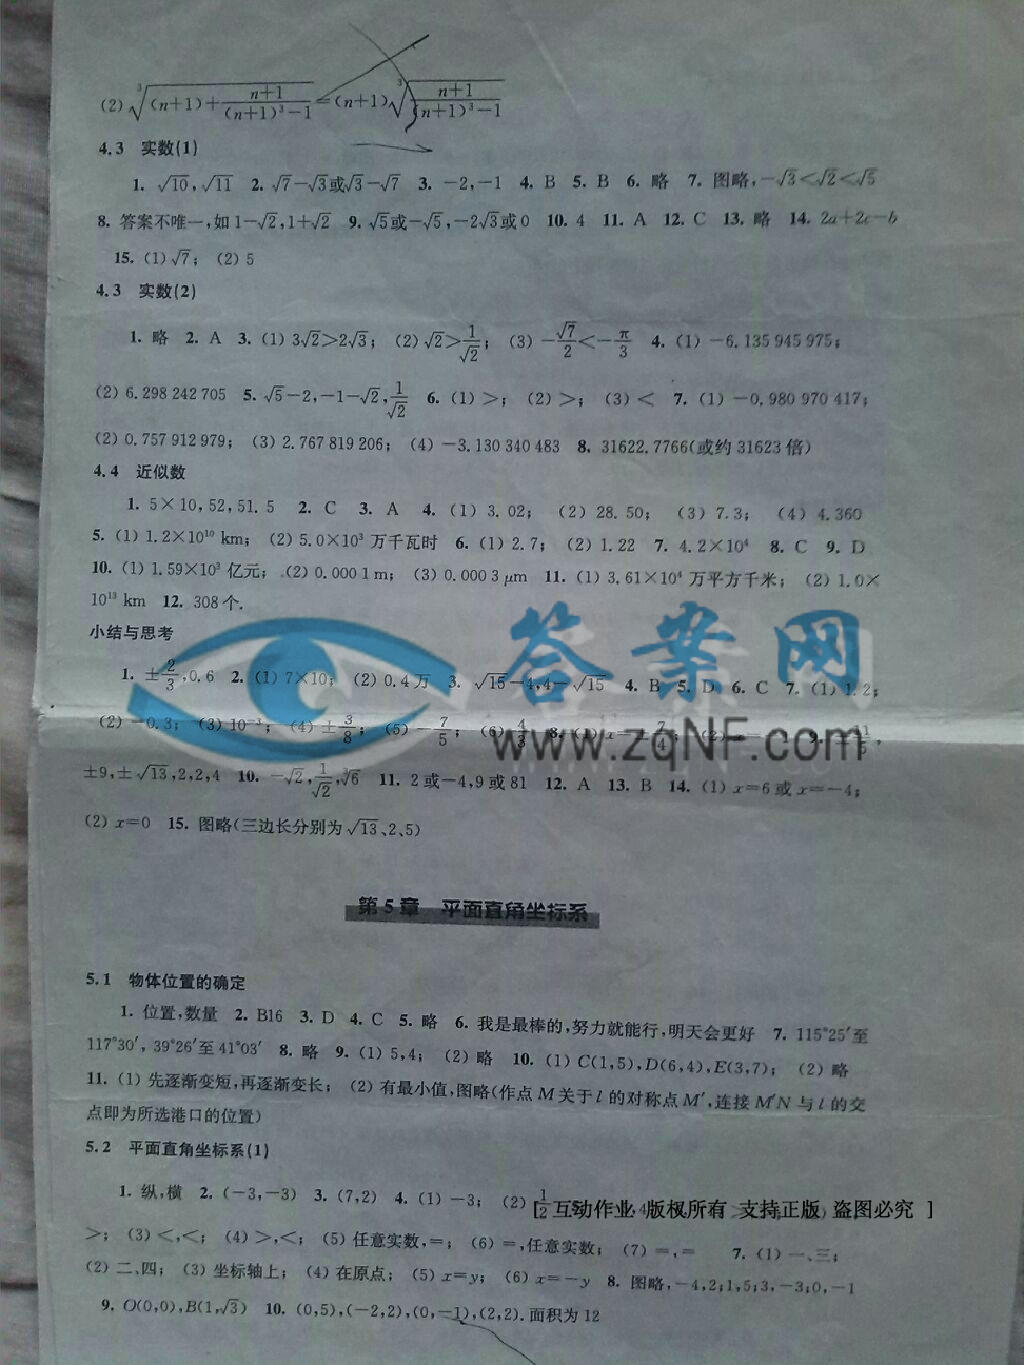 (2) ∛((n+1)+(n+1)/((n+1)³−1))=(n+1)∛((n+1)/((n+1)³−1))
4.3 实数(1)
1. √10,√11 2. √7−√3或√3−√7 3. −2,−1 4. B 5. B 6. 略 7. 图略,−√3<√2<√5
8. 答案不唯一,如1−√2,1+√2 9. √5或−√5,−2√3或0 10. 4 11. A 12. C 13. 略 14. 2a+2c−b
15. (1) √7; (2) 5
4.3 实数(2)
1. 略 2. A 3. (1) 3√2>2√3; (2) √2>1/√2; (3) −√7/2<−π/3 4. (1) −6.135 945 975;
(2) 6.298 242 705 5. √5−2,−1−√2,1/√2 6. (1) >; (2) >; (3) < 7. (1) −0.980 970 417;
(2) 0.757 912 979; (3) 2.767 819 206; (4) −3.130 340 483 8. 31622.7766(或约31623倍)
4.4 近似数
1. 5×10,52,51.5 2. C 3. A 4. (1) 3.02; (2) 28.50; (3) 7.3; (4) 4.360
5. (1) 1.2×10¹⁰ km; (2) 5.0×10³ 万千瓦时 6. (1) 2.7; (2) 1.22 7. 4.2×10⁴ 8. C 9. D
10. (1) 1.59×10³ 亿元; (2) 0.000 1 m; (3) 0.000 3 μm 11. (1) 3.61×10⁴ 万平方千米; (2) 1.0×
10¹³ km 12. 308个.
小结与思考
答案网
1. ±2/3,0.6 2. (1) 7×10; (2) 0.4万 3. √15−4,4−√15 4. B 5. D 6. C 7. (1) 1.2;
(2) −0.3; (3) 10⁻³; (4) ±3/8; (5) −7/5; (6) 4/3 8. (1) x=
www.zqNF.com
±9,±√13,2,2,4 10. −√2,1/√2,∛6 11. 2或−4,9或81 12. A 13. B 14. (1) x=6或x=−4;
(2) x=0 15. 图略(三边长分别为√13、2、5)
第5章 平面直角坐标系
5.1 物体位置的确定
1. 位置,数量 2. B16 3. D 4. C 5. 略 6. 我是最棒的,努力就能行,明天会更好 7. 115°25′至
117°30′, 39°26′至41°03′ 8. 略 9. (1) 5,4; (2) 略 10. (1) C(1,5),D(6,4),E(3,7); (2) 略
11. (1) 先逐渐变短,再逐渐变长; (2) 有最小值,图略(作点M关于l的对称点M′,连接M′N与l的交
点即为所选港口的位置)
5.2 平面直角坐标系(1)
1. 纵,横 2. (−3,−3) 3. (7,2) 4. (1) −3; (2) 1/2
[ 互动作业 版权所有 支持正版 盗图必究 ]
>; (3) <,<; (4) >,<; (5) 任意实数,=; (6) =,任意实数; (7) =,= 7. (1) 一、三;
(2) 二、四; (3) 坐标轴上; (4) 在原点; (5) x=y; (6) x=−y 8. 图略,−4,2;1,5;3,−3;0,−1
9. O(0,0),B(1,√3) 10. (0,5),(−2,2),(0,−1),(2,2).面积为12